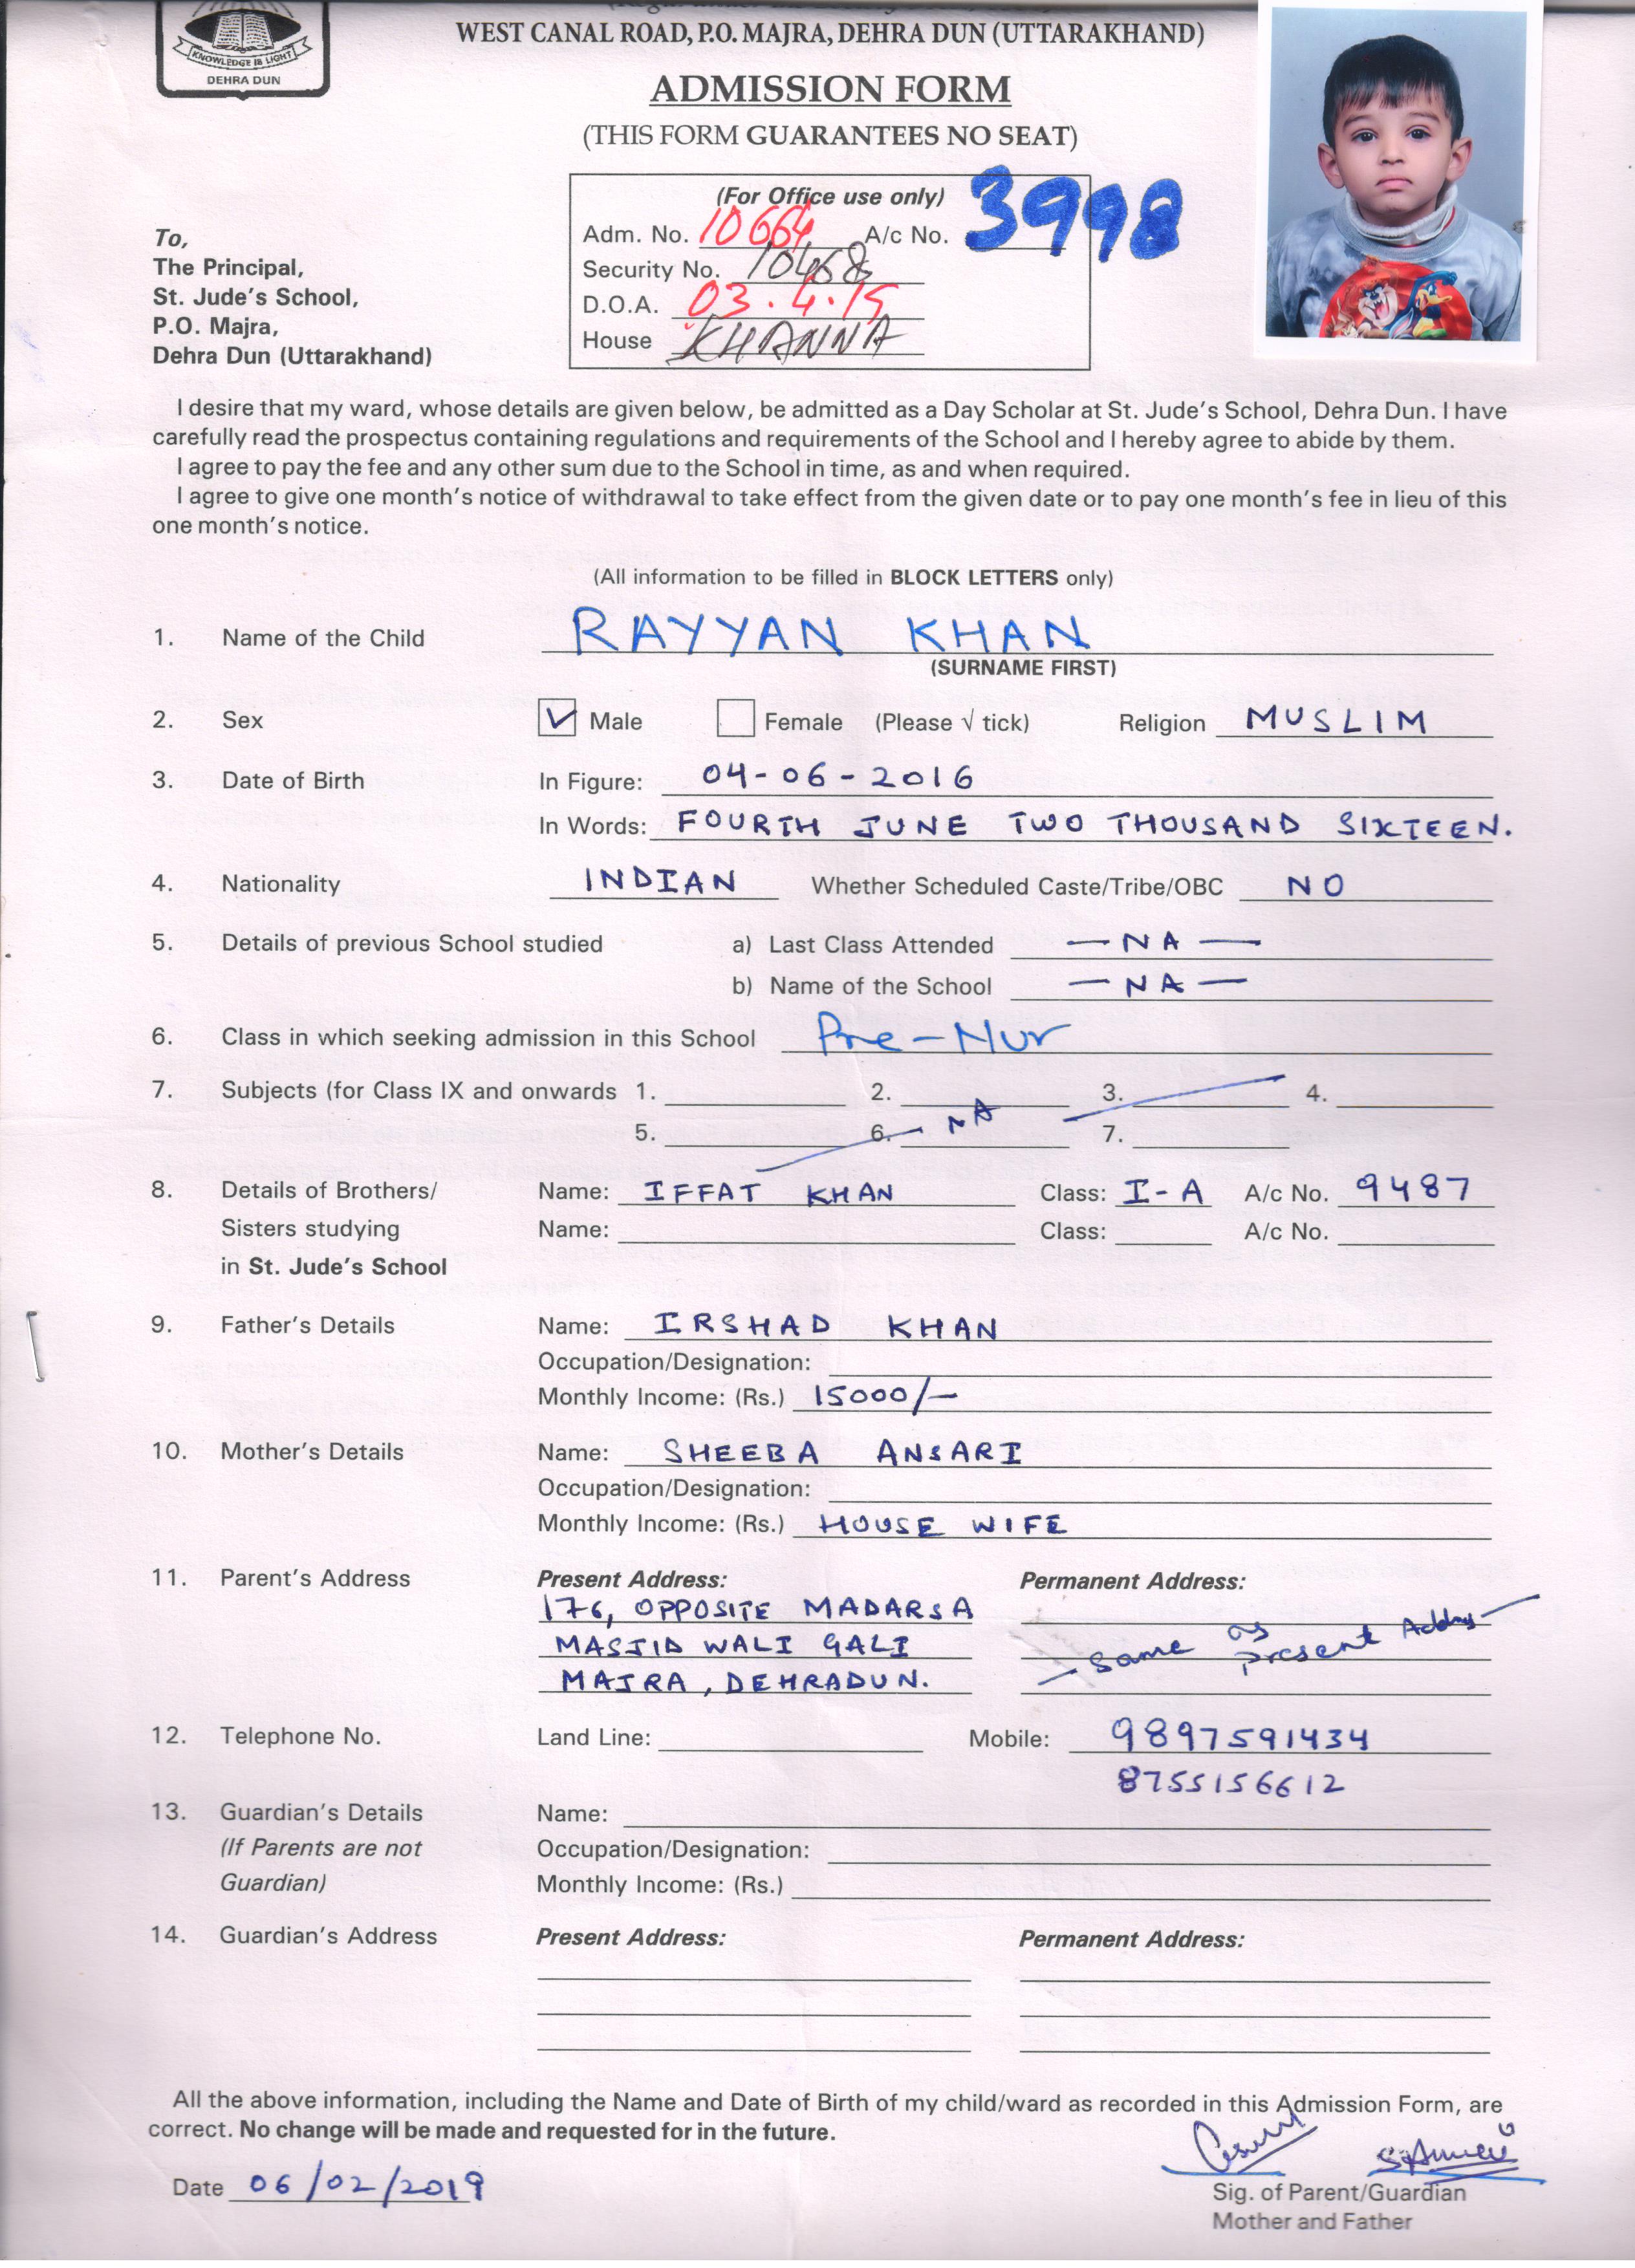 WEST CANAL ROAD, P.O. MAJRA, DEHRA DUN (UTTARAKHAND)
KNOWLEDGE IS LIGHT
DEHRA DUN
ADMISSION FORM
(THIS FORM GUARANTEES NO SEAT)
(For Office use only)
Adm. No. 10664 A/c No. 3998
Security No. 10468
D.O.A. 03.4.19
House KHANNA
To,
The Principal,
St. Jude's School,
P.O. Majra,
Dehra Dun (Uttarakhand)
I desire that my ward, whose details are given below, be admitted as a Day Scholar at St. Jude's School, Dehra Dun. I have
carefully read the prospectus containing regulations and requirements of the School and I hereby agree to abide by them.
I agree to pay the fee and any other sum due to the School in time, as and when required.
I agree to give one month's notice of withdrawal to take effect from the given date or to pay one month's fee in lieu of this
one month's notice.
(All information to be filled in BLOCK LETTERS only)
1. Name of the Child RAYYAN KHAN
(SURNAME FIRST)
2. Sex ✓ Male Female (Please √ tick) Religion MUSLIM
3. Date of Birth In Figure: 04-06-2016
In Words: FOURTH JUNE TWO THOUSAND SIXTEEN.
4. Nationality INDIAN Whether Scheduled Caste/Tribe/OBC NO
5. Details of previous School studied a) Last Class Attended — NA —
b) Name of the School — NA —
6. Class in which seeking admission in this School Pre-Nur
7. Subjects (for Class IX and onwards 1. 2. 3. 4.
5. 6. NA 7.
8. Details of Brothers/ Name: IFFAT KHAN Class: I-A A/c No. 9487
Sisters studying Name: Class: A/c No.
in St. Jude's School
9. Father's Details Name: IRSHAD KHAN
Occupation/Designation:
Monthly Income: (Rs.) 15000/-
10. Mother's Details Name: SHEEBA ANSARI
Occupation/Designation:
Monthly Income: (Rs.) HOUSE WIFE
11. Parent's Address Present Address: Permanent Address:
176, OPPOSITE MADARSA
MASJID WALI GALI — Same as present Address —
MAJRA, DEHRADUN.
12. Telephone No. Land Line: Mobile: 9897591434
8755156612
13. Guardian's Details Name:
(If Parents are not Occupation/Designation:
Guardian) Monthly Income: (Rs.)
14. Guardian's Address Present Address: Permanent Address:
All the above information, including the Name and Date of Birth of my child/ward as recorded in this Admission Form, are
correct. No change will be made and requested for in the future.
Date 06/02/2019
Sig. of Parent/Guardian
Mother and Father